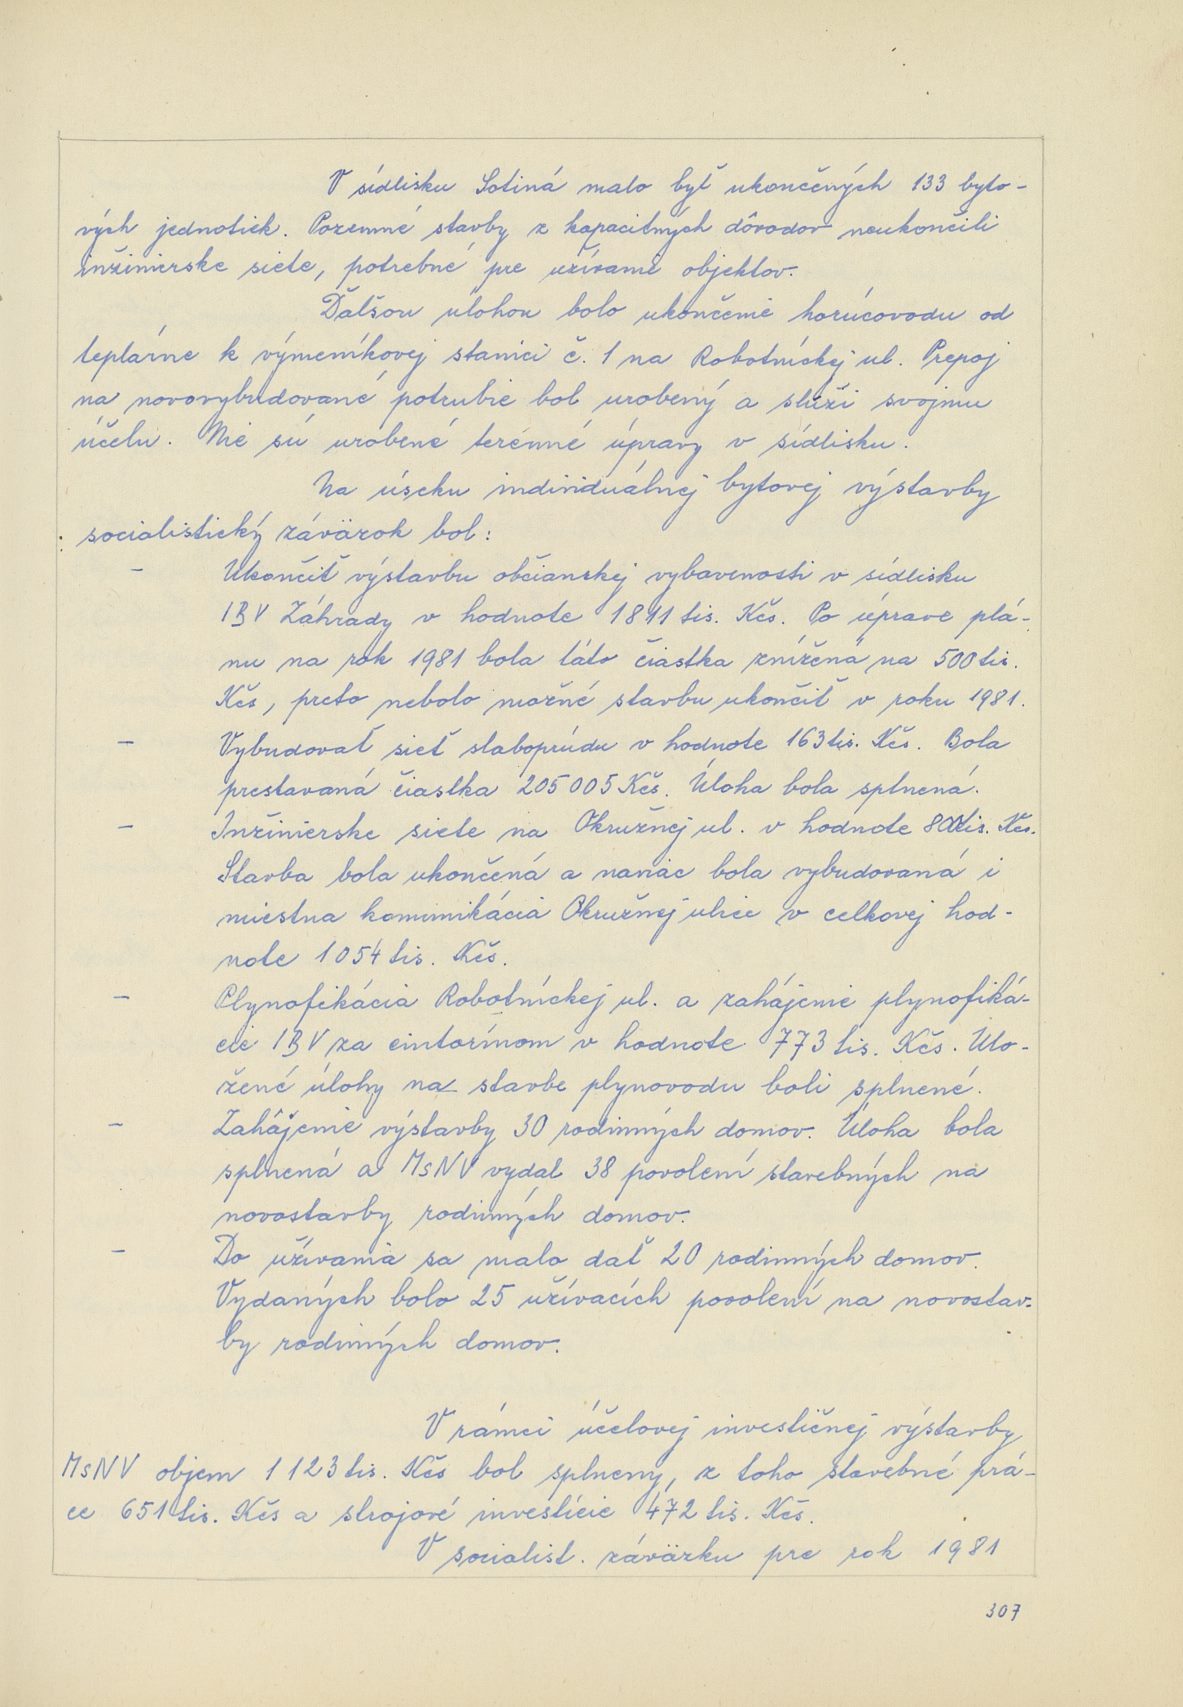 V sídlisku Sotiná malo byť ukončených 133 byto-
vých jednotiek. Pozemné stavby z kapacitných dôvodov neukončili
inžinierske siete, potrebné pre užívanie objektov.
Ďalšou úlohou bolo ukončenie horúcovodu od
teplárne k výmeníkovej stanici č. 1 na Robotníckej ul. Prepoj
na novovybudované potrubie bol urobený a slúži svojmu
účelu. Nie sú urobené terénné úpravy v sídlisku.
Na úseku individuálnej bytovej výstavby
socialistický záväzok bol:
- Ukončiť výstavbu občianskej vybavenosti v sídlisku
IBV Záhrady v hodnote 1811 tis. Kčs. Po úprave plá-
nu na rok 1981 bola táto čiastka znížená na 500 tis.
Kčs, preto nebolo možné stavbu ukončiť v roku 1981.
- Vybudovať sieť slaboprúdu v hodnote 163 tis. Kčs. Bola
prestavaná čiastka 205 005 Kčs. Úloha bola splnená.
- Inžinierske siete na Okružnej ul. v hodnote 800 tis. Kčs.
Stavba bola ukončená a naviac bola vybudovaná i
miestna komunikácia Okružnej ulice v celkovej hod-
note 1 054 tis. Kčs.
- Plynofikácia Robotníckej ul. a zahájenie plynofiká-
cie IBV za cintorínom v hodnote 773 tis. Kčs. Ulo-
žené úlohy na stavbe plynovodu boli splnené.
- Zahájenie výstavby 30 rodinných domov. Úloha bola
splnená a MsNV vydal 38 povolení stavebných na
novostavby rodinných domov.
- Do užívania sa malo dať 20 rodinných domov.
Vydaných bolo 25 užívacích povolení na novostav-
by rodinných domov.
V rámci účelovej investičnej výstavby
MsNV objem 1 123 tis. Kčs bol splneny, z toho stavebné prá-
ce 651 tis. Kčs a strojové investície 472 tis. Kčs.
V socialist. záväzku pre rok 1981
307